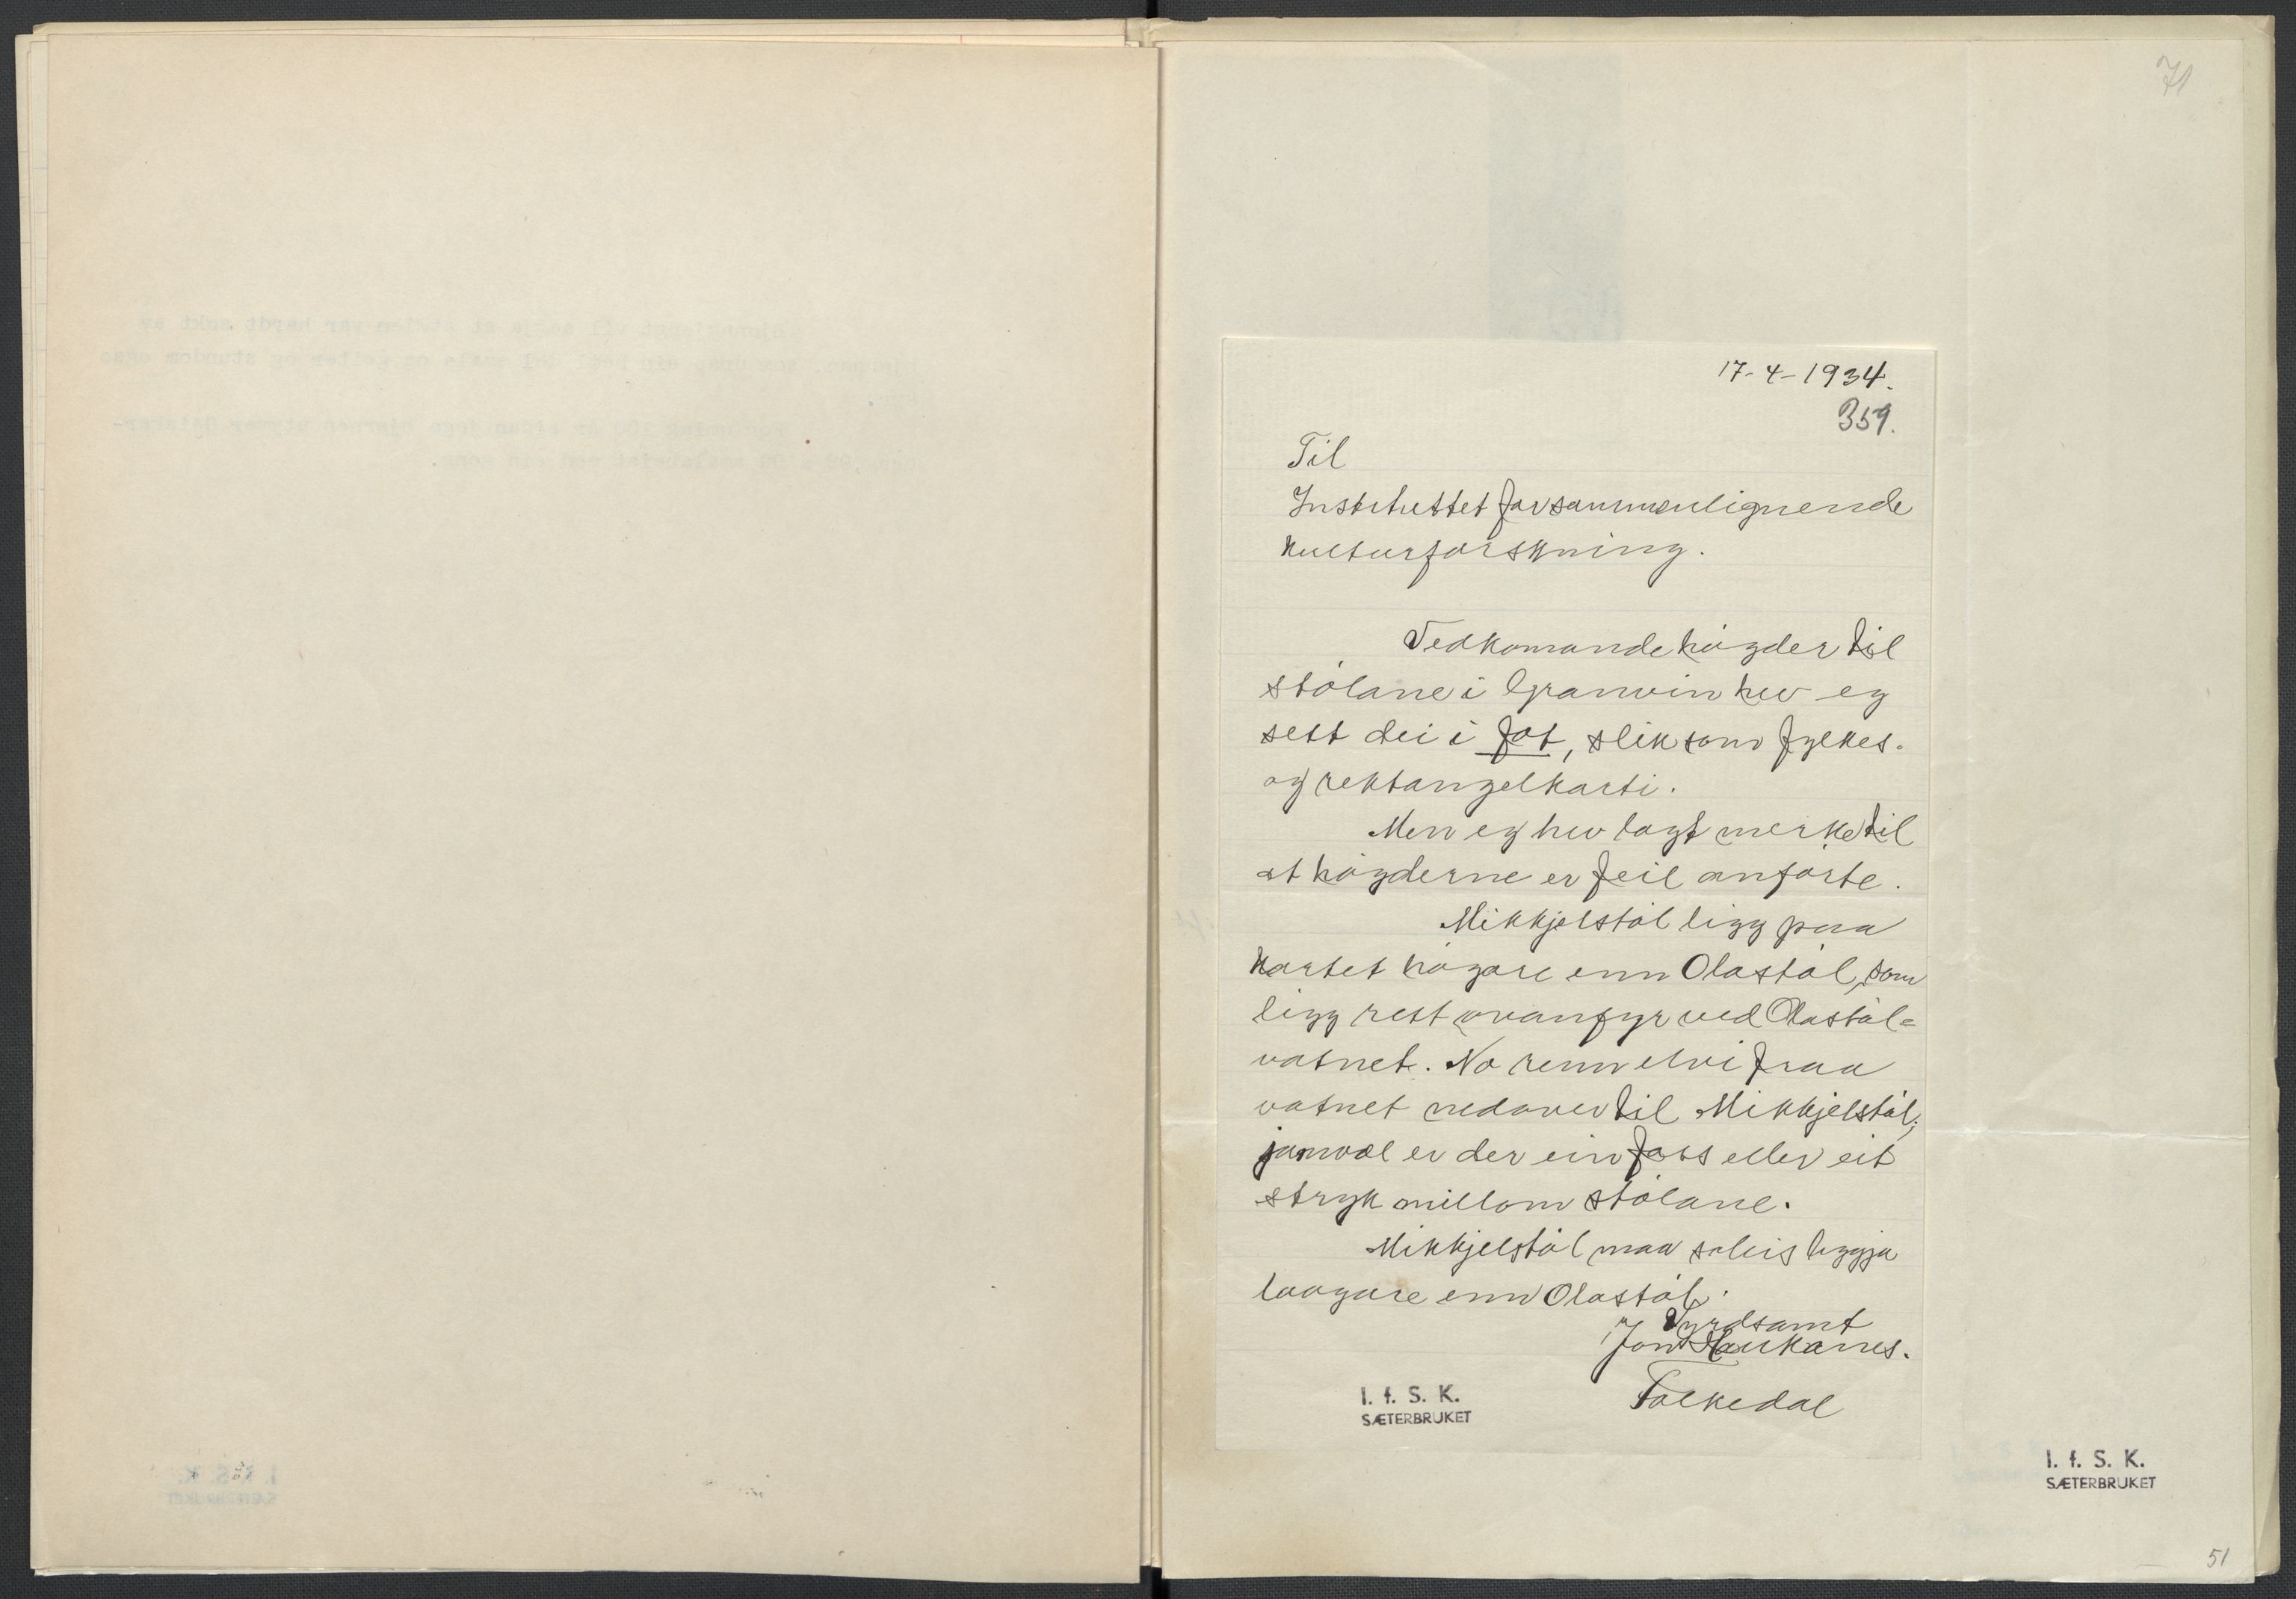 71
17-4-1934.
359.
Til
Instituttet for sammenlignende
kulturforskning.
Vedkomande högder til
stölane i Granvin hev eg
sett dei i fot, slik som fylkes-
og rektangelkarti.
Men eg hev lagt merke til
at högderne er feil anförte.
Mikkjelstöl ligg paa
kartet högare enn Olastöl, som
ligg rett ovanfyr ved Olastöl=
vatnet. No renn elvi fraa
vatnet nedover til Mikkjelstöl,
jamvæl er der ein foss eller eit
stryk millom stölane.
Mikkjelstöl maa soleis liggja
laagare enn Olastöl.
Vyrdsamt
Jon Haukanes.
Folkedal
I. f. S. K.
SÆTERBRUKET
I. f. S. K.
SÆTERBRUKET
51